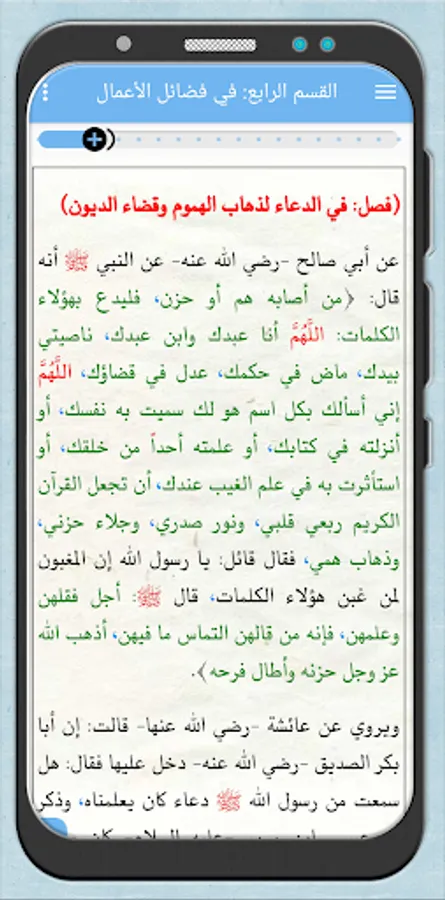 القسم الرابع: في فضائل الأعمال
(فصل: في الدعاء لذهاب الهموم وقضاء الديون)
عن أبي صالح -رضي الله عنه- عن النبي ﷺ أنه
قال: ﴿من أصابه هم أو حزن، فليدع بهؤلاء
الكلمات: اللَّهُمَّ أنا عبدك وابن عبدك، ناصيتي
بيدك، ماض في حكمك، عدل في قضاؤك، اللَّهُمَّ
إني أسألك بكل اسم هو لك سميت به نفسك، أو
أنزلته في كتابك، أو علمته أحداً من خلقك، أو
استأثرت به في علم الغيب عندك، أن تجعل القرآن
الكريم ربعي قلبي، ونور صدري، وجلاء حزني،
وذهاب همي، فقال قائل: يا رسول الله إن المغبون
لمن غبن هؤلاء الكلمات، قال ﷺ: أجل فقلهن
وعلمهن، فإنه من قالهن التماس ما فيهن، أذهب الله
عز وجل حزنه وأطال فرحه﴾.
ويروي عن عائشة -رضي الله عنها- قالت: إن أبا
بكر الصديق -رضي الله عنه- دخل عليها فقال: هل
سمعت من رسول الله ﷺ دعاء كان يعلمناه، وذكر